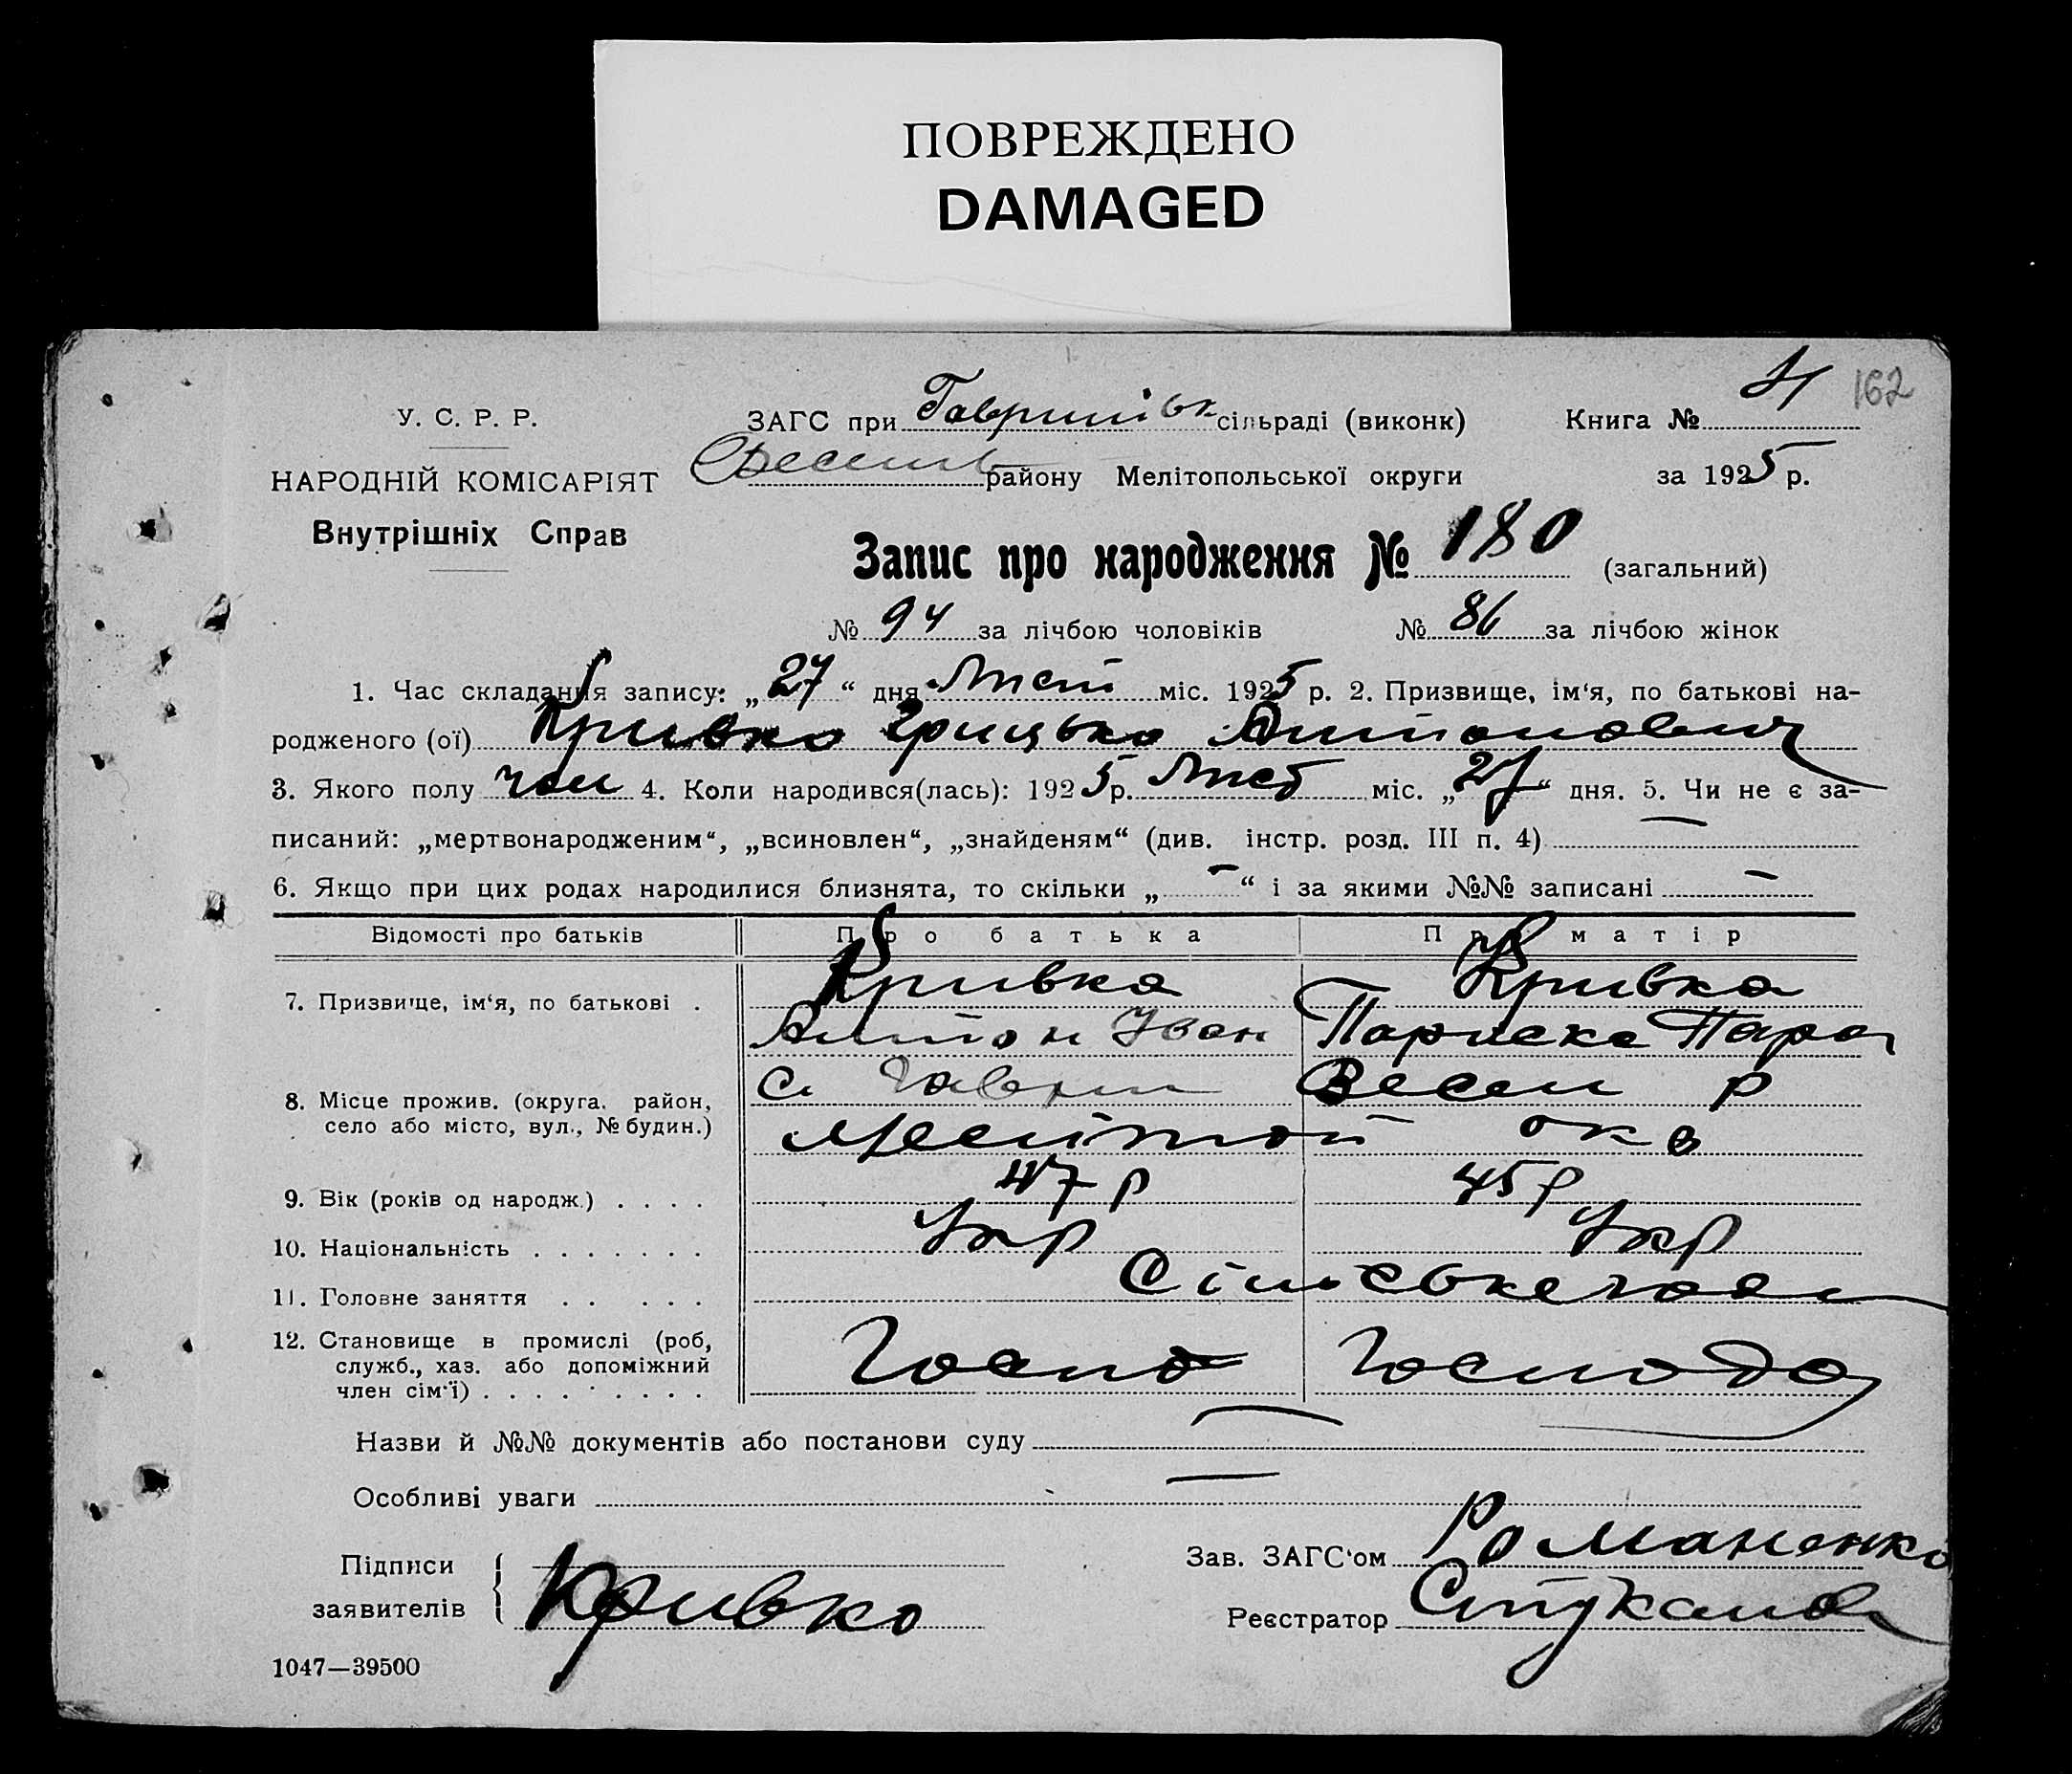 ПОВРЕЖДЕНО
DAMAGED
4 162
У. С. Р. Р. ЗАГС при Гаврилівськ сільраді (виконк) Книга №
НАРОДНІЙ КОМІСАРІЯТ Весели району Мелітопольської округи за 1925 р.
Внутрішніх Справ
Запис про народження № 180 (загальний)
№ 94 за лічбою чоловіків № 86 за лічбою жінок
1. Час складання запису: „27“ дня Лист міс. 1925 р. 2. Призвище, ім‘я, по батькові на-
родженого (ої) Кривко Грицько Антонович
3. Якого полу чол 4. Коли народився(лась): 1925 р. Лист міс. „27“ дня. 5. Чи не є за-
писаний: „мертвонародженим“, „всиновлен“, „знайденям“ (див. інстр. розд. III п. 4) —
6. Якщо при цих родах народилися близнята, то скільки „—“ і за якими №№ записані —
Відомості про батьків Про батька Про матір
7. Призвище, ім‘я, по батькові . Кривко Кривко
Антон Іван Параска
8. Місце прожив. (округа, район, с Гаврил Весели р
село або місто, вул., № будин.) Мелітоп окв
9. Вік (років од народж.) . . . . 47 р 45 р
10. Національність . . . . . . . Укр Укр
11. Головне заняття . . . . .
12. Становище в промислі (роб, Госпо Господа
служб., хаз. або допоміжний
член сім‘ї) . . . . . . . . .
Назви й №№ документів або постанови суду —
Особливі уваги —
Підписи Зав. ЗАГС‘ом Романенко
заявителів Кривко Реєстратор
1047—39500